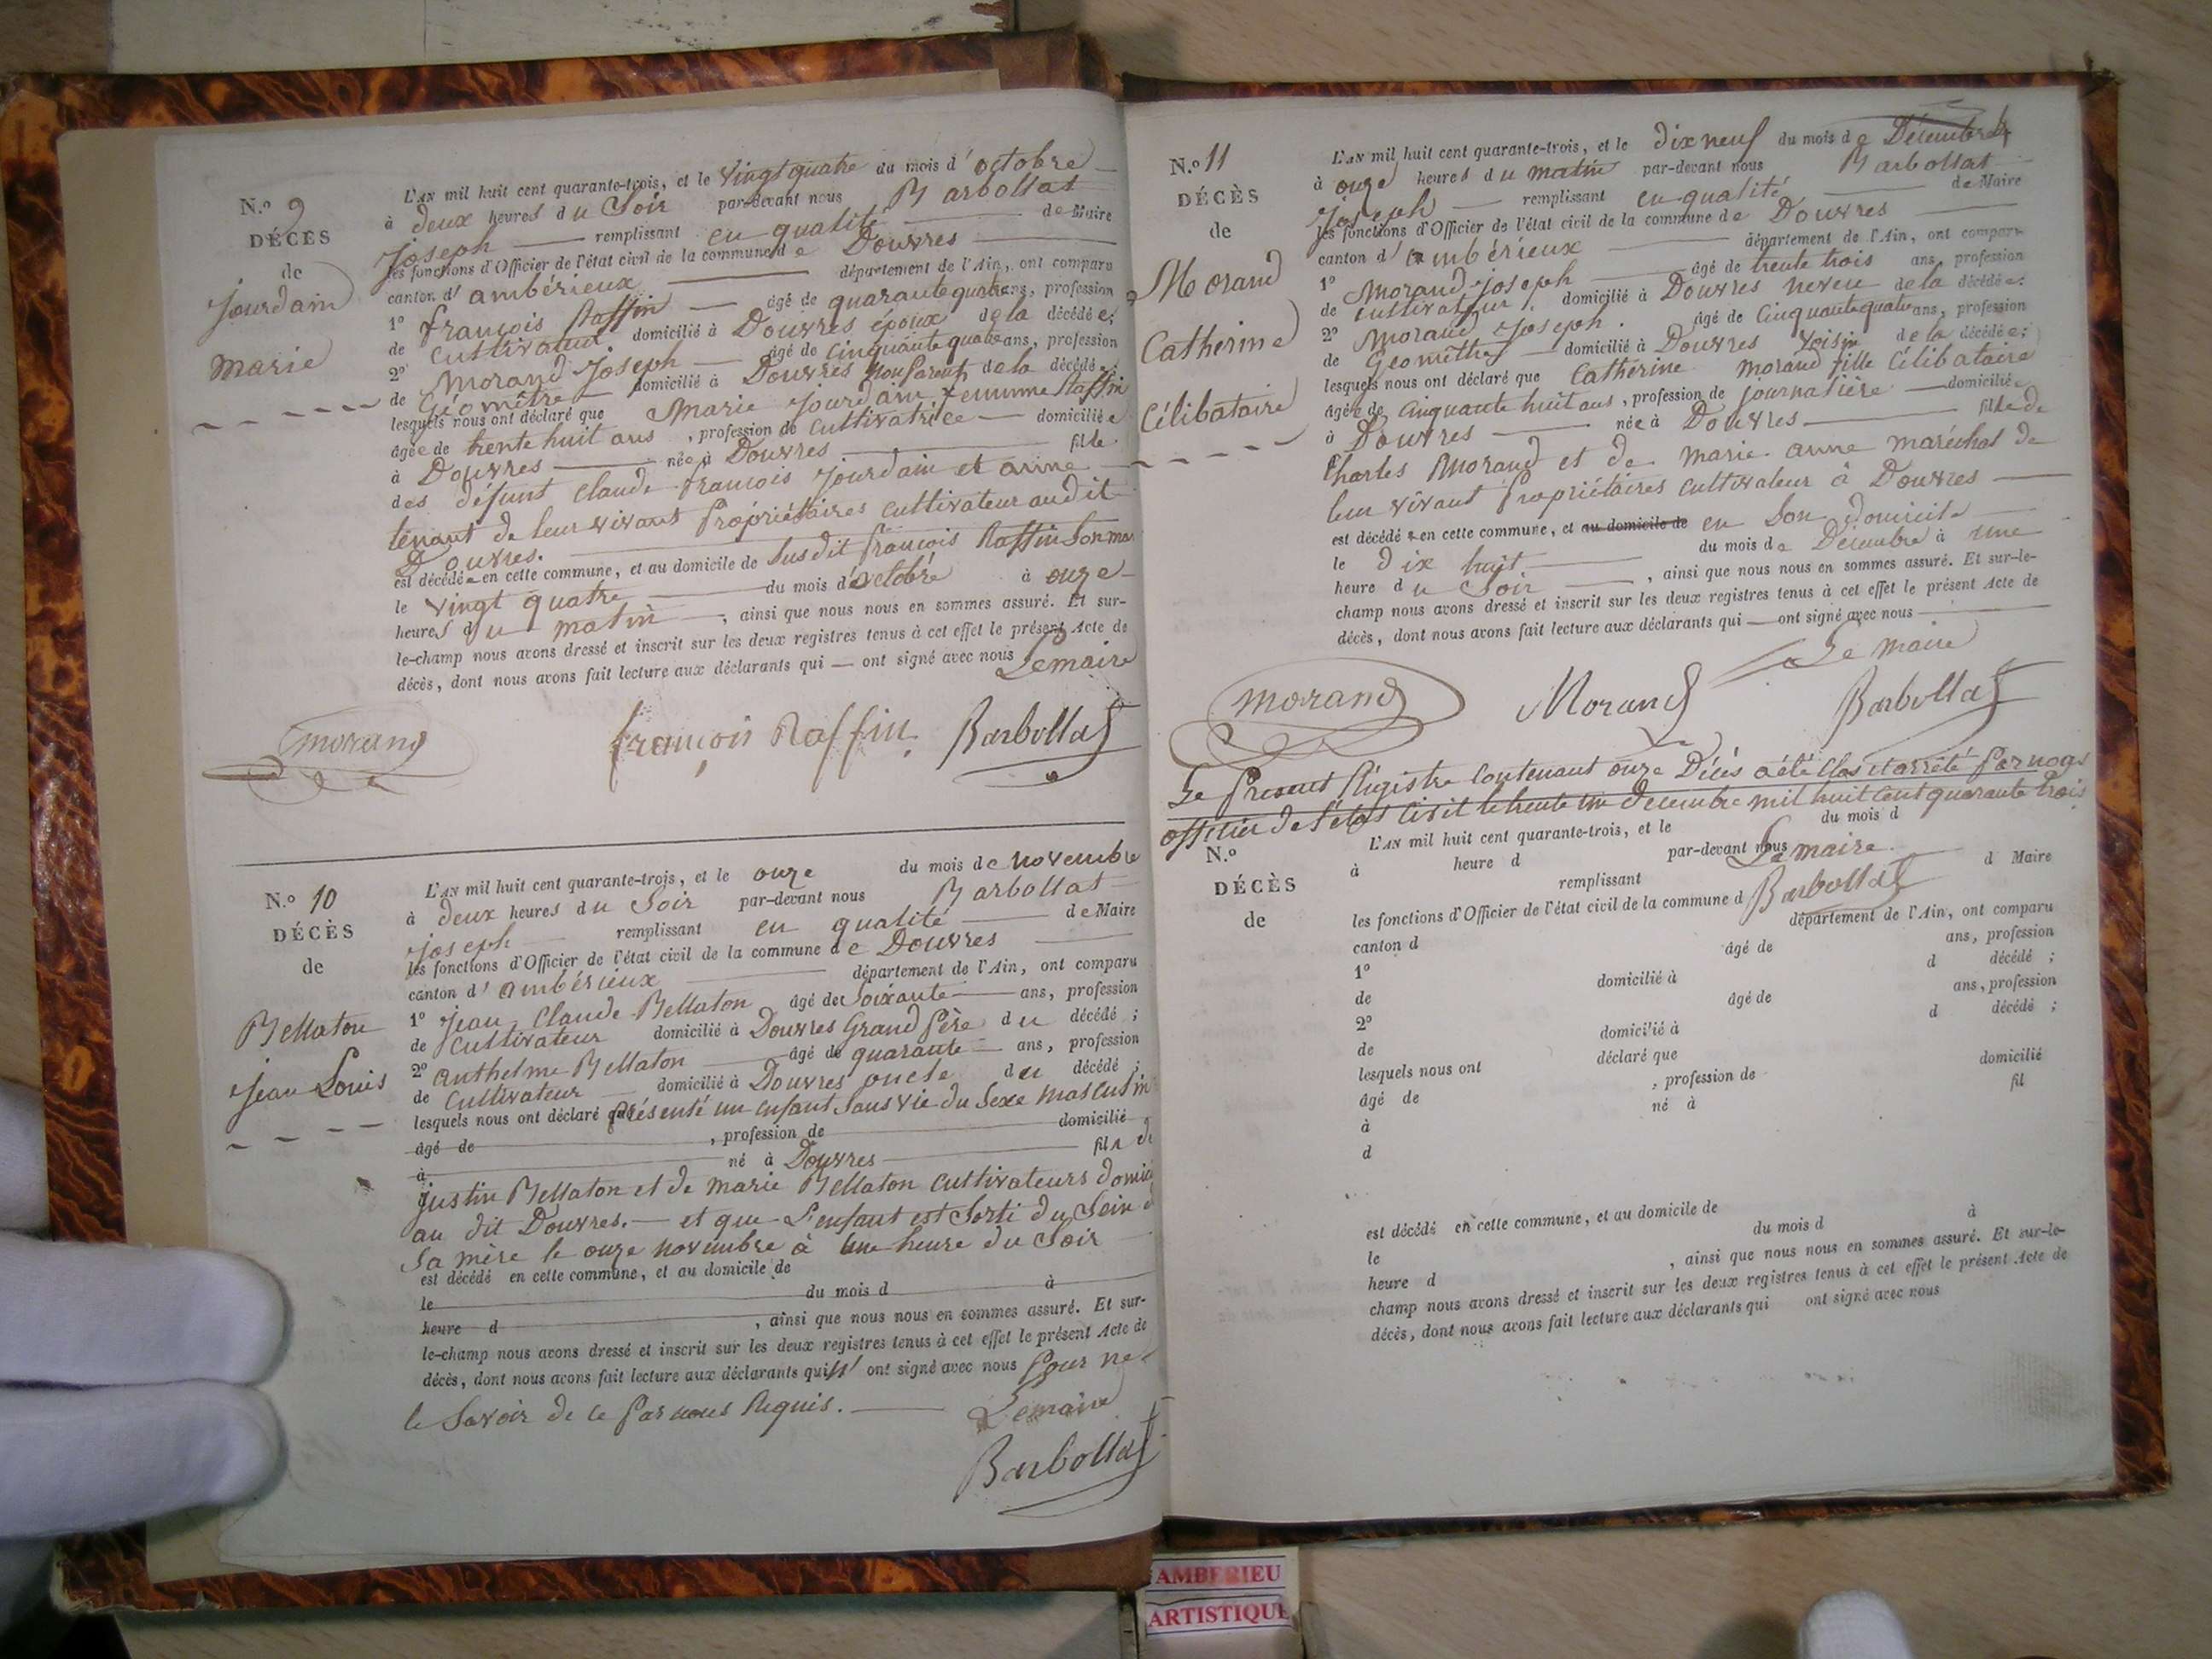 N.o 9
DÉCÈS
de
Jourdain
Marie
L'AN mil huit cent quarante-trois, et le vingt quatre du mois d'octobre
à deux heures du Soir par-devant nous Barbollat
Joseph remplissant en qualité de Maire
les fonctions d'Officier de l'état civil de la commune de Douvres
canton d'ambérieux département de l'Ain, ont comparu
1o françois Raffin âgé de quarante quatre ans, profession
de Cultivateur domicilié à Douvres époux de la décédée;
2o Morand Joseph âgé de Cinquante quatre ans, profession
de Géomètre domicilié à Douvres non parent de la décédée;
lesquels nous ont déclaré que Marie Jourdain femme Raffin
âgée de trente huit ans, profession de Cultivatrice domiciliée
à Douvres née à Douvres fille
des défunt Claude françois Jourdain et anne
tenant de leur vivant Propriétaires cultivateur audit
Douvres.
est décédée en cette commune, et au domicile de Susdit françois Raffin Son mari
le vingt quatre du mois d'octobre à onze
heures du matin, ainsi que nous nous en sommes assuré. Et sur-
le-champ nous avons dressé et inscrit sur les deux registres tenus à cet effet le présent Acte de
décès, dont nous avons fait lecture aux déclarants qui — ont signé avec nous Lemaire
morand françois Raffin Barbollat
N.o 10
DÉCÈS
de
Bellaton
Jean Louis
L'AN mil huit cent quarante-trois, et le onze du mois de novembre
à deux heures du Soir par-devant nous Barbollat
Joseph remplissant en qualité de Maire
les fonctions d'Officier de l'état civil de la commune de Douvres
canton d'ambérieux département de l'Ain, ont comparu
1o Jean Claude Bellaton âgé de Soixante ans, profession
de Cultivateur domicilié à Douvres Grand Père du décédé;
2o anthelme Bellaton âgé de quarante ans, profession
de Cultivateur domicilié à Douvres oncle du décédé;
lesquels nous ont déclaré présenté un enfant Sans vie du Sexe masculin
âgé de , profession de domicilié
à né à Douvres fils de
Justin Bellaton et de marie Bellaton cultivateurs domici
au dit Douvres. — et que L'enfant est Sorti du Sein d
Sa mère le onze novembre à une heure du Soir
est décédé en cette commune, et au domicile de
le du mois d à
heure d , ainsi que nous nous en sommes assuré. Et sur-
le-champ nous avons dressé et inscrit sur les deux registres tenus à cet effet le présent Acte de
décès, dont nous avons fait lecture aux déclarants qui n' ont signé avec nous Pour ne
le Savoir de ce par nous Requis. — Lemaire
Barbollat
N.o 11
DÉCÈS
de
Morand
Catherine
Célibataire
L'AN mil huit cent quarante-trois, et le dix neuf du mois de Décembre
à onze heures du matin par-devant nous Barbollat
Joseph remplissant en qualité de Maire
les fonctions d'Officier de l'état civil de la commune de Douvres
canton d'ambérieux département de l'Ain, ont comparu
1o Morand Joseph âgé de trente trois ans, profession
de cultivateur domicilié à Douvres neveu de la décédée;
2o Morand Joseph. âgé de Cinquante quatre ans, profession
de Géomètre domicilié à Douvres Voisin de la décédée;
lesquels nous ont déclaré que Catherine Morand fille Célibataire
âgée de Cinquante huit ans, profession de journalière domiciliée
à Douvres née à Douvres fille de
Charles Morand et de marie anne maréchal de
leur vivant Propriétaires cultivateur à Douvres
est décédée en cette commune, et au domicile de en Son domicile
le dix huit du mois de Décembre à une
heure du Soir, ainsi que nous nous en sommes assuré. Et sur-le-
champ nous avons dressé et inscrit sur les deux registres tenus à cet effet le présent Acte de
décès, dont nous avons fait lecture aux déclarants qui — ont signé avec nous
Le maire
morand Morand Barbollat
Le Present Régistre Contenant onze Décès a été Clos et arrêté Par nous
officier de l'état Civil le trente un Decembre mil huit cent quarante trois
N.o
DÉCÈS
de
L'AN mil huit cent quarante-trois, et le du mois d
à heure d par-devant nous Lemaire.
remplissant d Maire
les fonctions d'Officier de l'état civil de la commune d Barbollat
canton d département de l'Ain, ont comparu
1o âgé de ans, profession
de domicilié à d décédé ;
2o âgé de ans, profession
de domicilié à d décédé ;
lesquels nous ont déclaré que
âgé de , profession de domicilié
à né à fil
d
est décédé en cette commune, et au domicile de
le du mois d à
heure d , ainsi que nous nous en sommes assuré. Et sur-le-
champ nous avons dressé et inscrit sur les deux registres tenus à cet effet le présent Acte de
décès, dont nous avons fait lecture aux déclarants qui ont signé avec nous
AMBERIEU
ARTISTIQUE